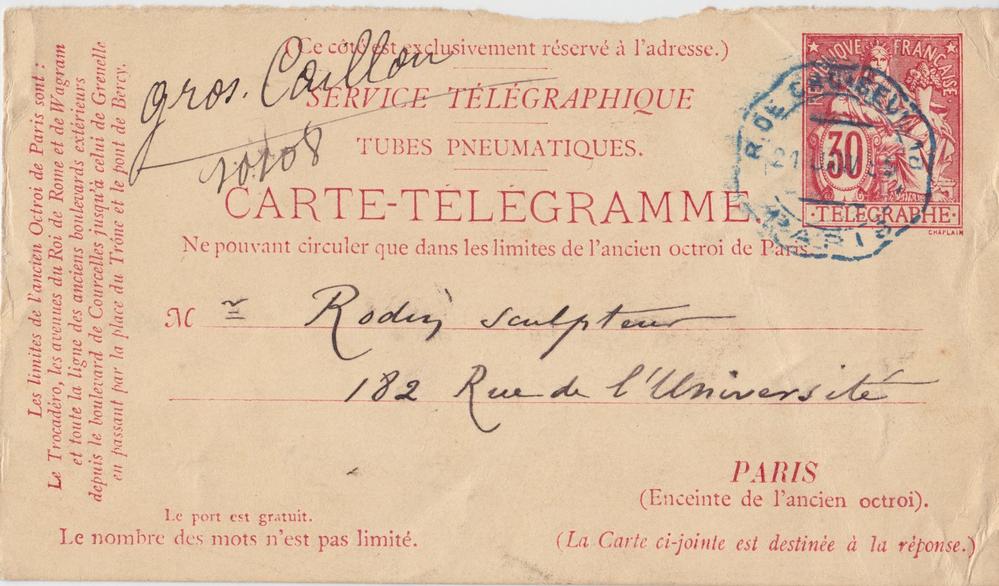 (Ce côté est exclusivement réservé à l'adresse.)
gros. Caillou
SERVICE TÉLÉGRAPHIQUE
10108
TUBES PNEUMATIQUES.
CARTE-TÉLÉGRAMME
Ne pouvant circuler que dans les limites de l'ancien octroi de Paris
FRANÇAISE
30
TÉLÉGRAPHE
CHAPLAIN
PARIS
M r Rodin sculpteur
182 Rue de l'Université
PARIS
(Enceinte de l'ancien octroi).
Le port est gratuit.
Le nombre des mots n'est pas limité.
(La Carte ci-jointe est destinée à la réponse.)
Les limites de l'ancien Octroi de Paris sont :
Le Trocadéro, les avenues du Roi de Rome et de Wagram
et toute la ligne des anciens boulevards extérieurs
depuis le boulevard de Courcelles jusqu'à celui de Grenelle
en passant par la place du Trône et le pont de Bercy.